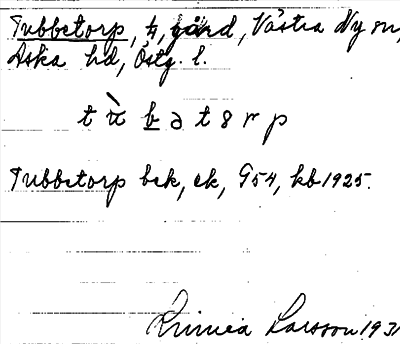 Tubbetorp, h, gård, Västra Ny sn,
Aska hd, Östg. l.
Tubbetorp bek, ek, G54, kb 1925.
Linnea Larsson 193